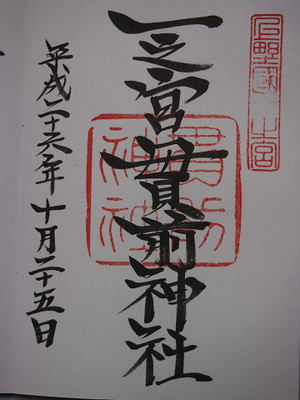 上野國一之宮
一之宮貫前神社
貫前
神社
平成二十六年十月二十五日